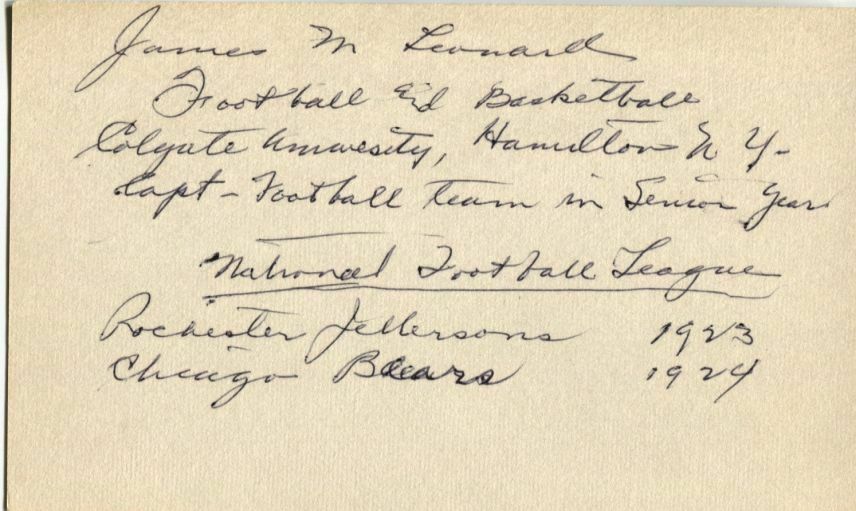 James M Leonard
Football and Basketball
Colgate University, Hamilton N Y-
Capt - Football team in Senior Year
National Football League
Rochester Jeffersons 1923
Chicago Bears 1924